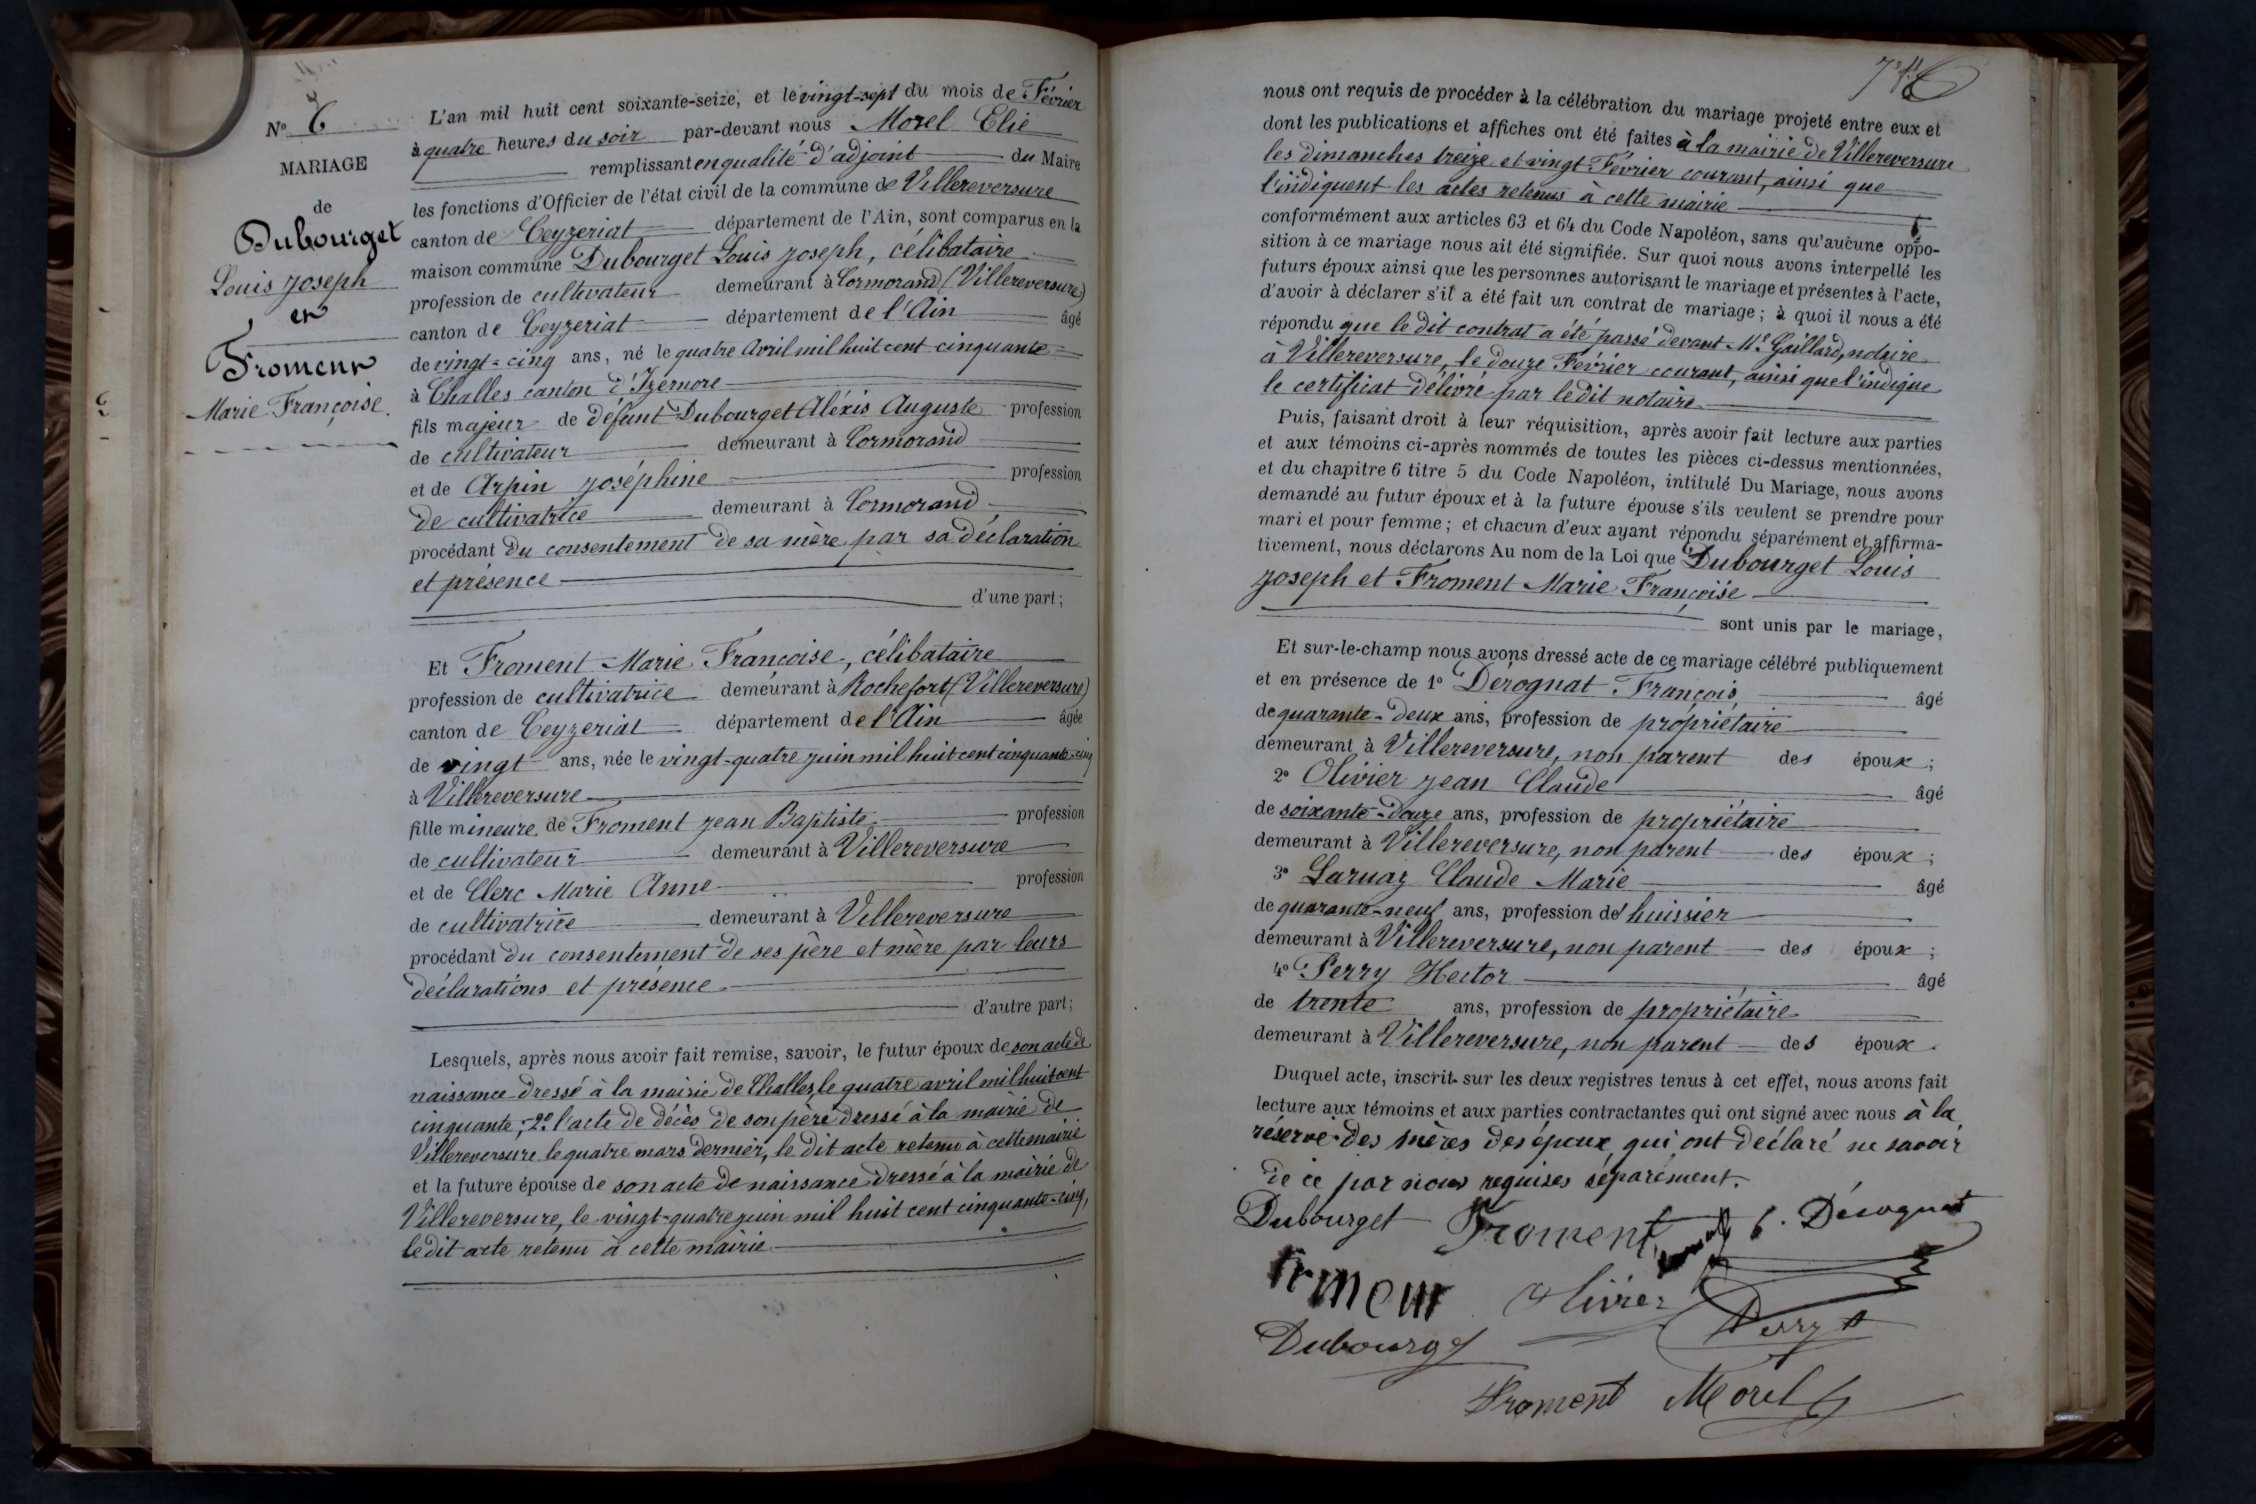 No 6
MARIAGE
de
Dubourget
Louis Joseph
et
Froment
Marie Françoise
L'an mil huit cent soixante-seize, et le vingt-sept du mois de Février
à quatre heures du soir par-devant nous Morel Elie
remplissant en qualité d'adjoint du Maire
les fonctions d'Officier de l'état civil de la commune de Villereversure
canton de Ceyzeriat département de l'Ain, sont comparus en la
maison commune Dubourget Louis Joseph, célibataire
profession de cultivateur demeurant à Cormorand (Villereversure)
canton de Ceyzeriat département de l'Ain âgé
de vingt-cinq ans, né le quatre Avril mil huit cent cinquante
à Challes canton d'Izernore
fils majeur de défunt Dubourget Aléxis Auguste profession
de cultivateur demeurant à Cormorand
et de Arpin Joséphine profession
de cultivatrice demeurant à Cormorand
procédant du consentement de sa mère par sa déclaration
et présence
d'une part;
Et Froment Marie Francoise, célibataire
profession de cultivatrice demeurant à Rochefort (Villereversure)
canton de Ceyzeriat département de l'Ain âgée
de vingt ans, née le vingt-quatre juin mil huit cent cinquante-cinq
à Villereversure
fille mineure de Froment Jean Baptiste profession
de cultivateur demeurant à Villereversure
et de Clerc Marie Anne profession
de cultivatrice demeurant à Villereversure
procédant du consentement de ses père et mère par leurs
déclarations et présence
d'autre part;
Lesquels, après nous avoir fait remise, savoir, le futur époux de son acte de
naissance dressé à la mairie de Challes, le quatre avril mil huit cent
cinquante; 2º l'acte de décès de son père dressé à la mairie de
Villereversure le quatre mars dernier, le dit acte retenu à cette mairie
et la future épouse de son acte de naissance dressé à la mairie de
Villereversure, le vingt-quatre juin mil huit cent cinquante-cinq,
le dit acte retenu à cette mairie
nous ont requis de procéder à la célébration du mariage projeté entre eux et
dont les publications et affiches ont été faites à la mairie de Villereversure
les dimanches treize et vingt Février courant, ainsi que
l'indiquent les actes retenus à cette mairie
conformément aux articles 63 et 64 du Code Napoléon, sans qu'aucune oppo-
sition à ce mariage nous ait été signifiée. Sur quoi nous avons interpellé les
futurs époux ainsi que les personnes autorisant le mariage et présentes à l'acte,
d'avoir à déclarer s'il a été fait un contrat de mariage; à quoi il nous a été
répondu que le dit contrat a été passé devant Me Gaillard, notaire
à Villereversure, le douze Février courant, ainsi que l'indique
le certificat délivré par ledit notaire.
Puis, faisant droit à leur réquisition, après avoir fait lecture aux parties
et aux témoins ci-après nommés de toutes les pièces ci-dessus mentionnées,
et du chapitre 6 titre 5 du Code Napoléon, intitulé Du Mariage, nous avons
demandé au futur époux et à la future épouse s'ils veulent se prendre pour
mari et pour femme; et chacun d'eux ayant répondu séparément et affirma-
tivement, nous déclarons Au nom de la Loi que Dubourget Louis
Joseph et Froment Marie Françoise
sont unis par le mariage,
Et sur-le-champ nous avons dressé acte de ce mariage célébré publiquement
et en présence de 1º Derognat François âgé
de quarante-deux ans, profession de propriétaire
demeurant à Villereversure, non parent des époux;
2º Olivier Jean Claude âgé
de soixante-douze ans, profession de propriétaire
demeurant à Villereversure, non parent des époux;
3º Laruaz Claude Marie âgé
de quarante-neuf ans, profession de huissier
demeurant à Villereversure, non parent des époux;
4º Perry Hector âgé
de trente ans, profession de propriétaire
demeurant à Villereversure, non parent des époux.
Duquel acte, inscrit sur les deux registres tenus à cet effet, nous avons fait
lecture aux témoins et aux parties contractantes qui ont signé avec nous à la
réserve des mères des époux, qui ont déclaré ne savoir
de ce par nous requises séparément.
Dubourget Froment f. Dérognat
Olivier
Perry
Dubourget
Froment Morel